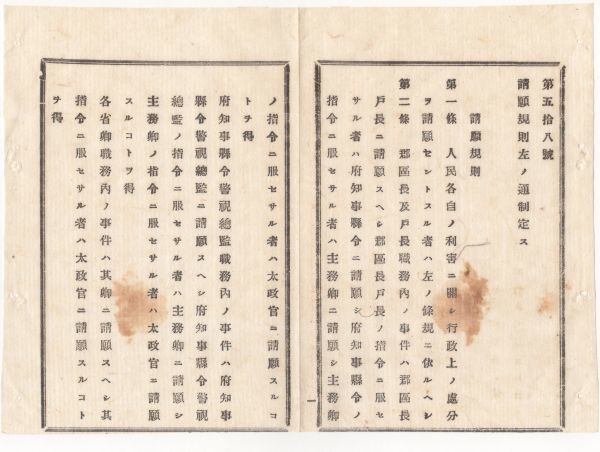 第五拾八號
請願規則左ノ通制定ス
請願規則
第一條 人民各自ノ利害ニ關シ行政上ノ處分
ヲ請願セントスル者ハ左ノ條規ニ依ルヘシ
第二條 郡區長及戸長職務內ノ事件ハ郡區長
戸長ニ請願スヘシ郡區長戸長ノ指令ニ服セ
サル者ハ府知事縣令ニ請願シ府知事縣令ノ
指令ニ服セサル者ハ主務卿ニ請願シ主務卿
一
ノ指令ニ服セサル者ハ太政官ニ請願スルコ
トヲ得
府知事縣令警視總監職務內ノ事件ハ府知事
縣令警視總監ニ請願スヘシ府知事縣令警視
總監ノ指令ニ服セサル者ハ主務卿ニ請願シ
主務卿ノ指令ニ服セサル者ハ太政官ニ請願
スルコトヲ得
各省卿職務內ノ事件ハ其卿ニ請願スヘシ其
指令ニ服セサル者ハ太政官ニ請願スルコト
ヲ得